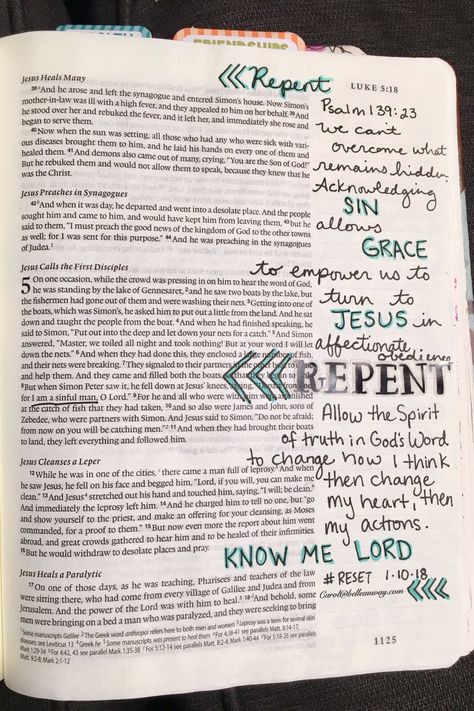 FRIENDSHIPS
Repent
LUKE 5:18
Psalm 139:23
we can't
overcome what
remains hidden.
Acknowledging
SIN
allows
GRACE
to empower us to
turn to
JESUS in
affectionate
obedience
REPENT
Allow the Spirit
of truth in God's Word
to change how I think
then change
my heart, then
my actions.
KNOW ME LORD
#RESET 1-10-18
Carol@belleauway.com
1125
Jesus Heals Many
38 And he arose and left the synagogue and entered Simon's house. Now Simon's
mother-in-law was ill with a high fever, and they appealed to him on her behalf. 39 And
he stood over her and rebuked the fever, and it left her, and immediately she rose and
began to serve them.
40 Now when the sun was setting, all those who had any who were sick with vari-
ous diseases brought them to him, and he laid his hands on every one of them and
healed them. 41 And demons also came out of many, crying, "You are the Son of God!"
But he rebuked them and would not allow them to speak, because they knew that he
was the Christ.
Jesus Preaches in Synagogues
42 And when it was day, he departed and went into a desolate place. And the people
sought him and came to him, and would have kept him from leaving them, 43 but he
said to them, "I must preach the good news of the kingdom of God to the other towns
as well; for I was sent for this purpose." 44 And he was preaching in the synagogues
of Judea.
Jesus Calls the First Disciples
5 On one occasion, while the crowd was pressing in on him to hear the word of God,
he was standing by the lake of Gennesaret, 2 and he saw two boats by the lake, but
the fishermen had gone out of them and were washing their nets. 3 Getting into one of
the boats, which was Simon's, he asked him to put out a little from the land. And he sat
down and taught the people from the boat. 4 And when he had finished speaking, he
said to Simon, "Put out into the deep and let down your nets for a catch." 5 And Simon
answered, "Master, we toiled all night and took nothing! But at your word I will let
down the nets." 6 And when they had done this, they enclosed of fish,
and their nets were breaking. 7 They signaled to their partners
and help them. And they came and filled both the boats,
8 But when Simon Peter saw it, he fell down at Jesus' knees,
for I am a sinful man, O Lord." 9 For he and all who were with
at the catch of fish that they had taken, 10 and so also were James and John, sons of
Zebedee, who were partners with Simon. And Jesus said to Simon, "Do not be afraid;
from now on you will be catching men." 11 And when they had brought their boats
to land, they left everything and followed him.
Jesus Cleanses a Leper
12 While he was in one of the cities, there came a man full of leprosy. And when
he saw Jesus, he fell on his face and begged him, "Lord, if you will, you can make me
clean." 13 And Jesus stretched out his hand and touched him, saying, "I will; be clean."
And immediately the leprosy left him. 14 And he charged him to tell no one, but "go
and show yourself to the priest, and make an offering for your cleansing, as Moses
commanded, for a proof to them." 15 But now even more the report about him went
abroad, and great crowds gathered to hear him and to be healed of their infirmities.
16 But he would withdraw to desolate places and pray.
Jesus Heals a Paralytic
17 On one of those days, as he was teaching, Pharisees and teachers of the law
were sitting there, who had come from every village of Galilee and Judea and from
Jerusalem. And the power of the Lord was with him to heal. 18 And behold, some
men were bringing on a bed a man who was paralyzed, and they were seeking to bring